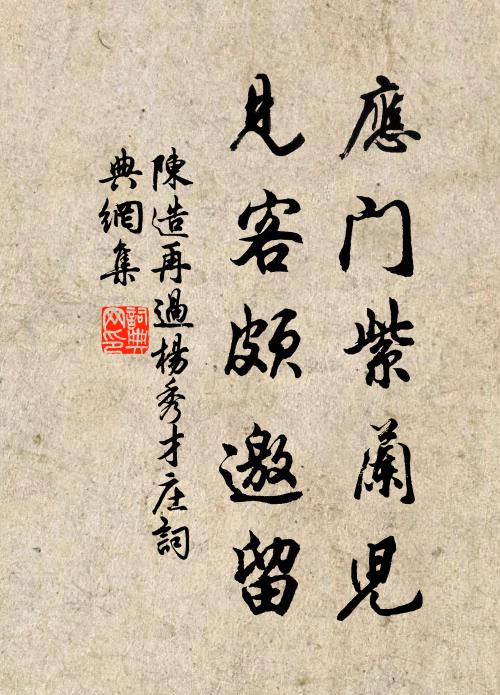 應門紫蘭兒
見客頗邀留
陳造再過楊秀才庄詞
典網集
詞典网印